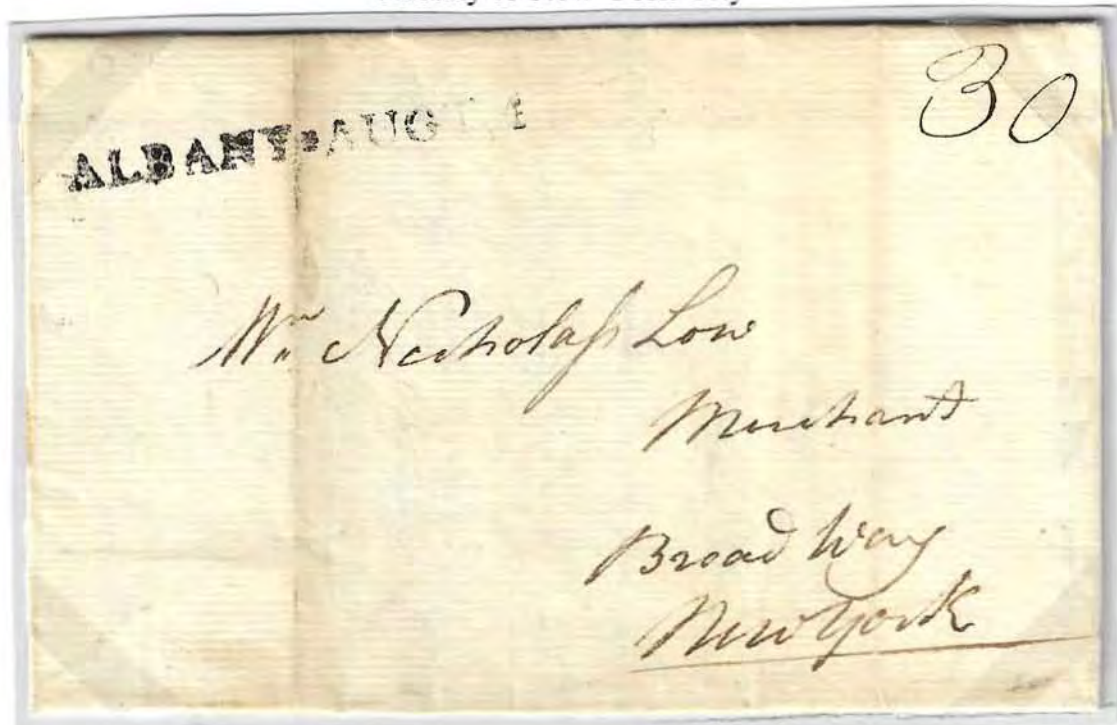 30
ALBANY*AUG
Mr Nicholass Low
Merchant
Broad Way
New York